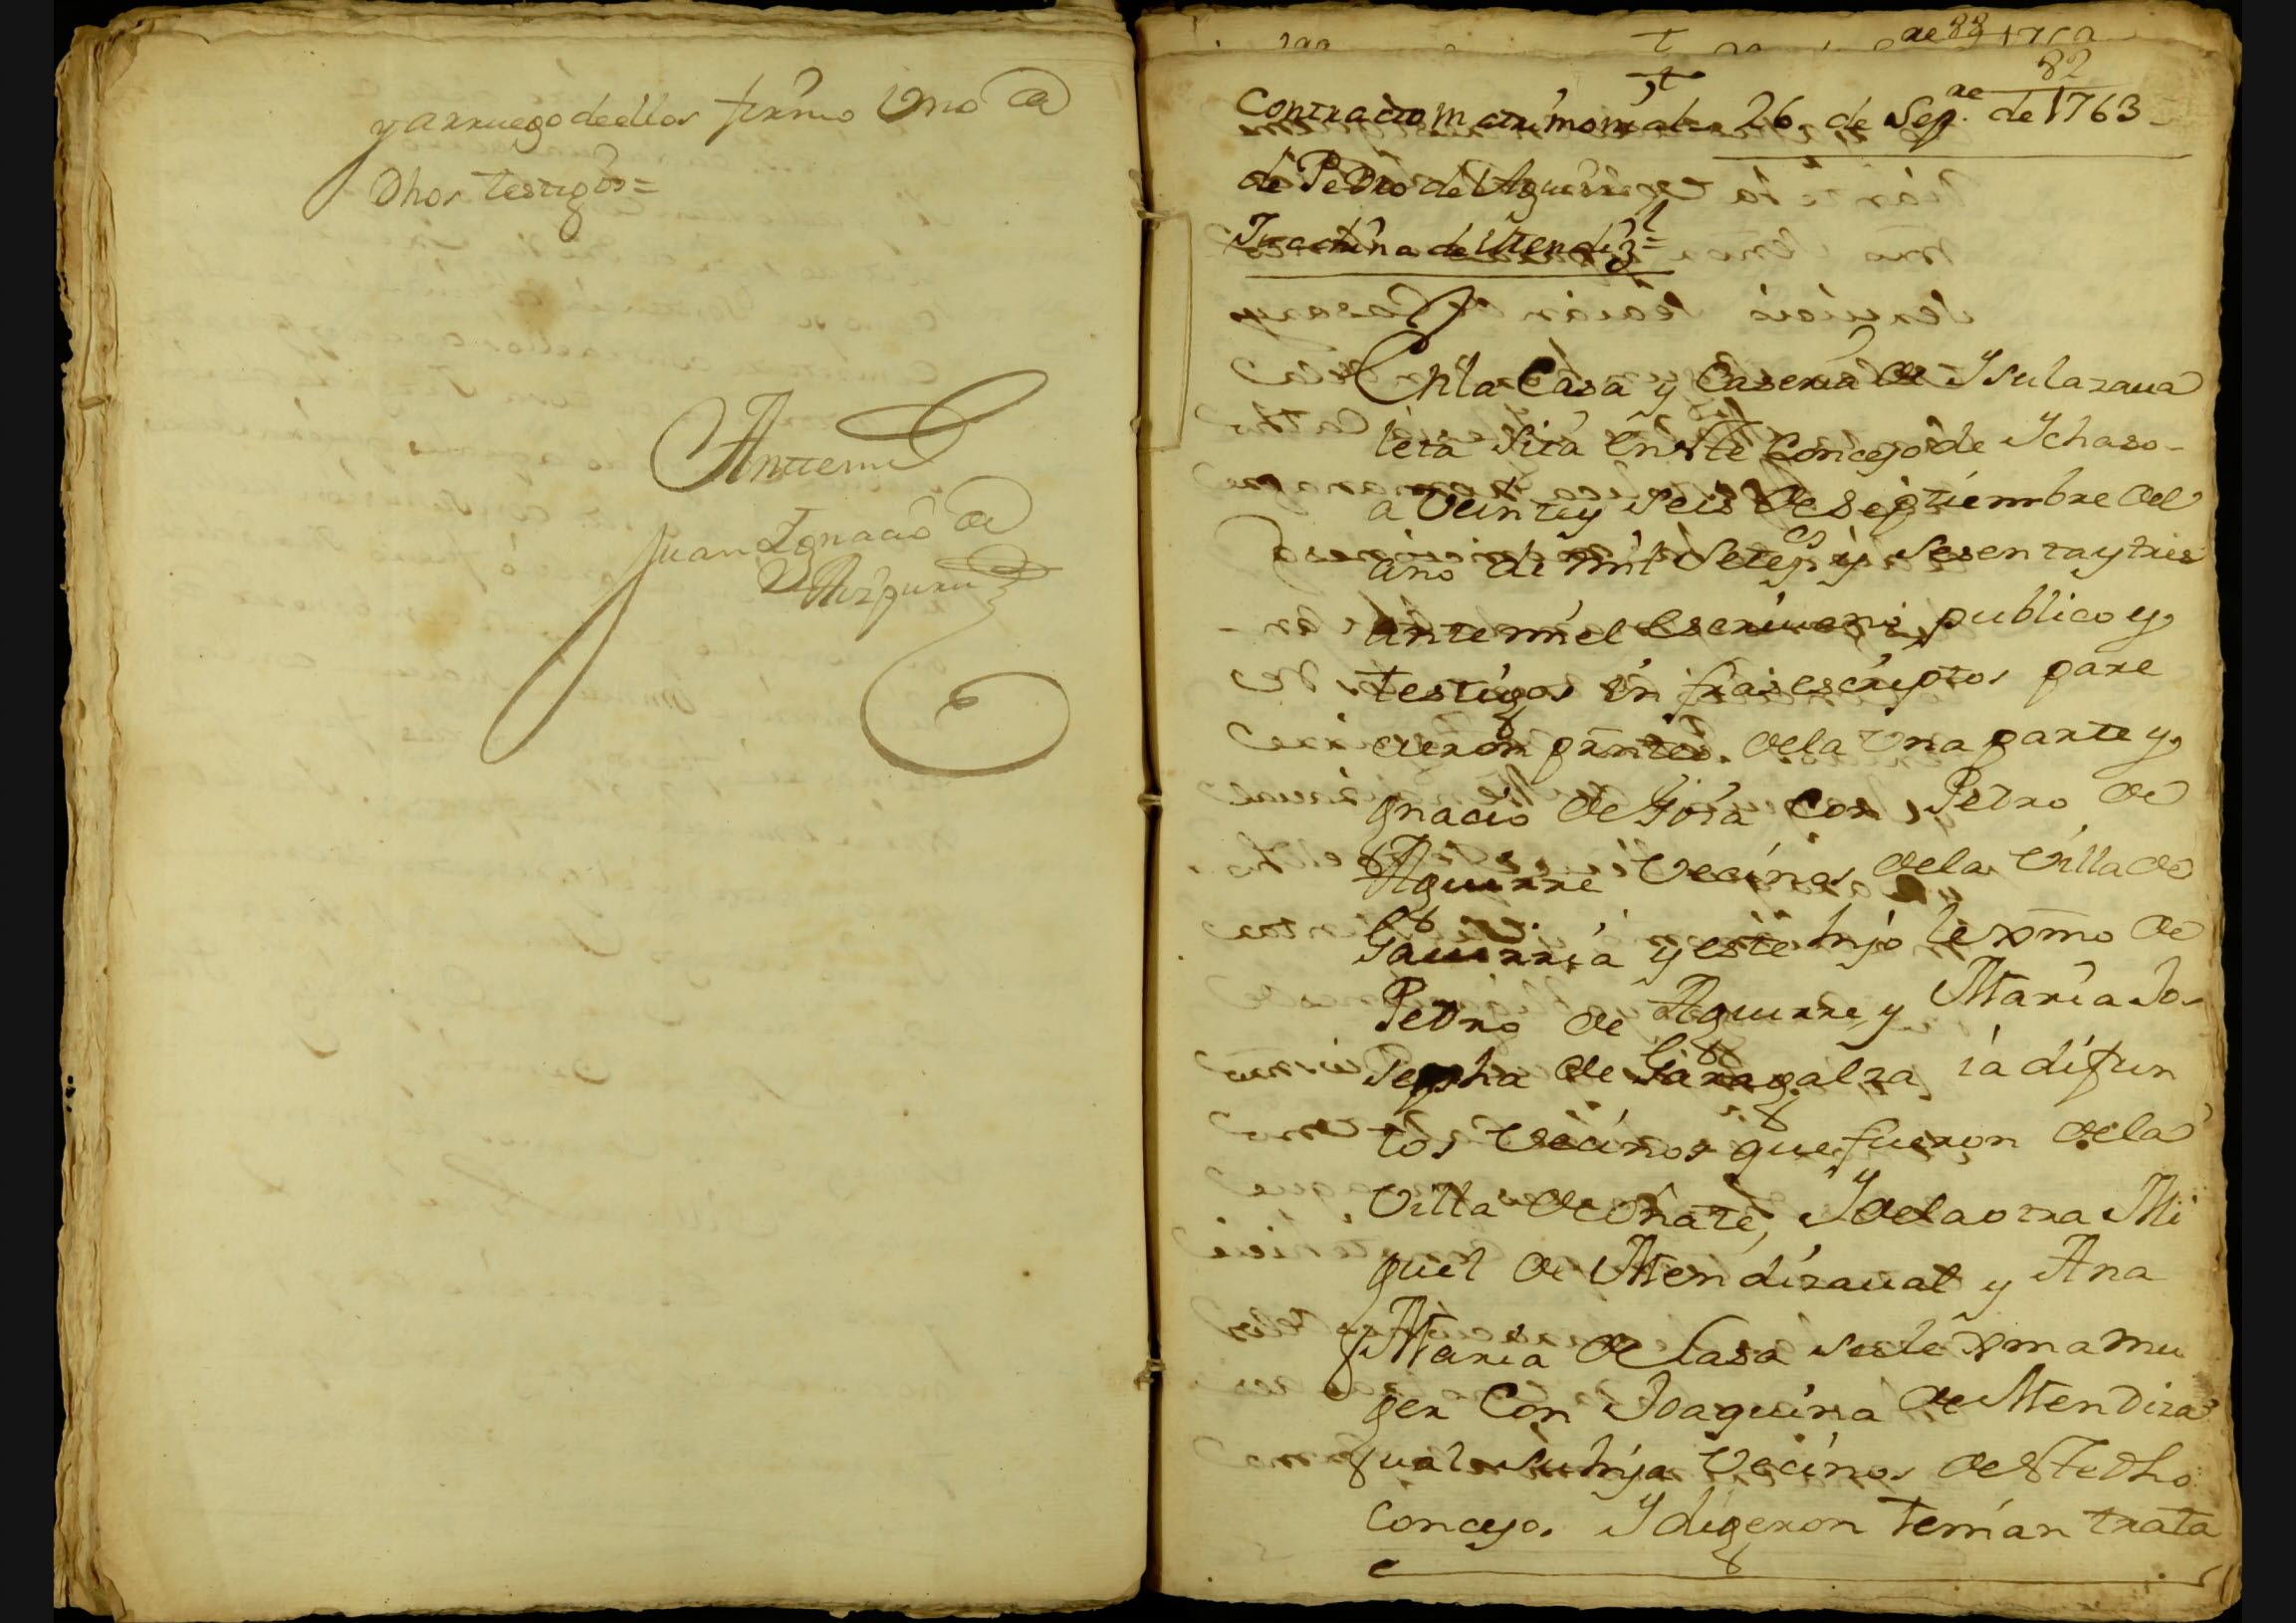 y arruego de ellos firmo Uno de
Dhos testigos =
Antemi
Juan Ignacio de
Aizpuru
82
Contracto matrimonial 26, de Sepre. de 1763
de Pedro de Aguirre
Juachina de Mendizl =
En la Casa y Caseria de Ysulazaua
leta Sita en ste Concejo de Ychaso
a Veinte y Seis de Septiembre del
año de mil Seteƶs. y Sesenta y tres
ante mi el escriuano publico y
testigos infraescriptos pare
cieron prntes. de la Una parte y,
gnacio de Goia Con Pedro de
Aguirre Vecinos de la Villa de
Gauirria y este hijo lexmo de
Pedro de Aguirre, y Maria Jo
sepha de Garagalza ia difun
tos Vecinos que fueron de la
Villa de Oñate, Y de la otra Mi
guel de Mendizaual y Ana
Maria de Lasa su lexma mu
ger Con Joaquina de Mendiza
ual su hija Vecinos de ste dho
concejo. Y digeron tenian trata